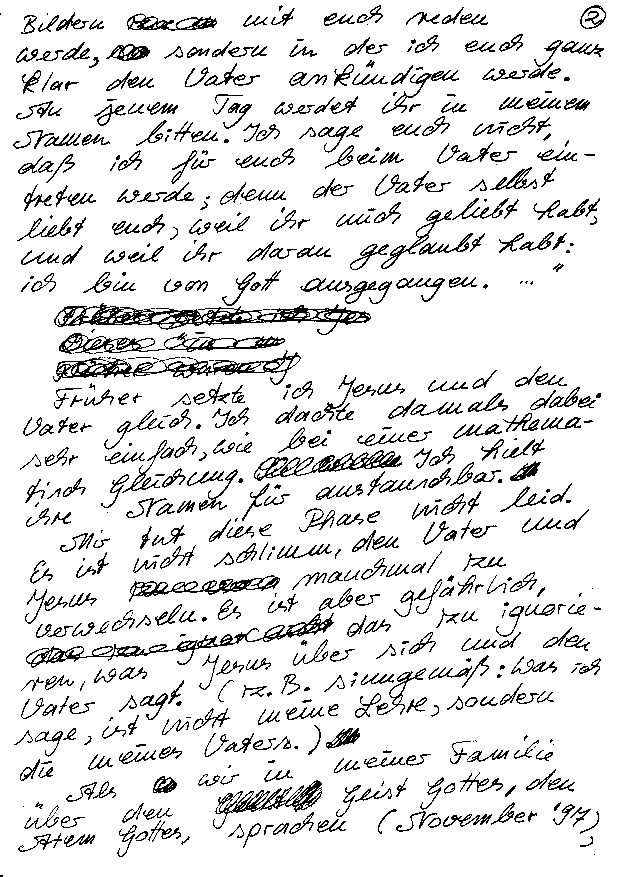 Bildern mit euch reden
②
werde, sondern in der ich euch ganz
klar den Vater ankündigen werde.
An jenem Tag werdet ihr in meinem
Namen bitten. Ich sage euch nicht,
daß ich für euch beim Vater ein-
treten werde; denn der Vater selbst
liebt euch, weil ihr mich geliebt habt,
und weil ihr daran geglaubt habt:
ich bin von Gott ausgegangen. ... "
Früher setzte ich Jesus und den
Vater gleich. Ich dachte damals dabei
sehr einfach, wie bei einer mathema-
tisch Gleichung. Ich hielt
ihre Namen für austauschbar.
Mir tut diese Phase nicht leid.
Es ist nicht schlimm, den Vater und
Jesus manchmal zu
verwechseln. Es ist aber gefährlich,
das zu ignorie-
ren, was Jesus über sich und den
Vater sagt. (z.B. sinngemäß: Was ich
sage, ist nicht meine Lehre, sondern
die meines Vaters.)
Als wir in meiner Familie
über den Geist Gottes, den
Atem Gottes, sprachen (November '97),